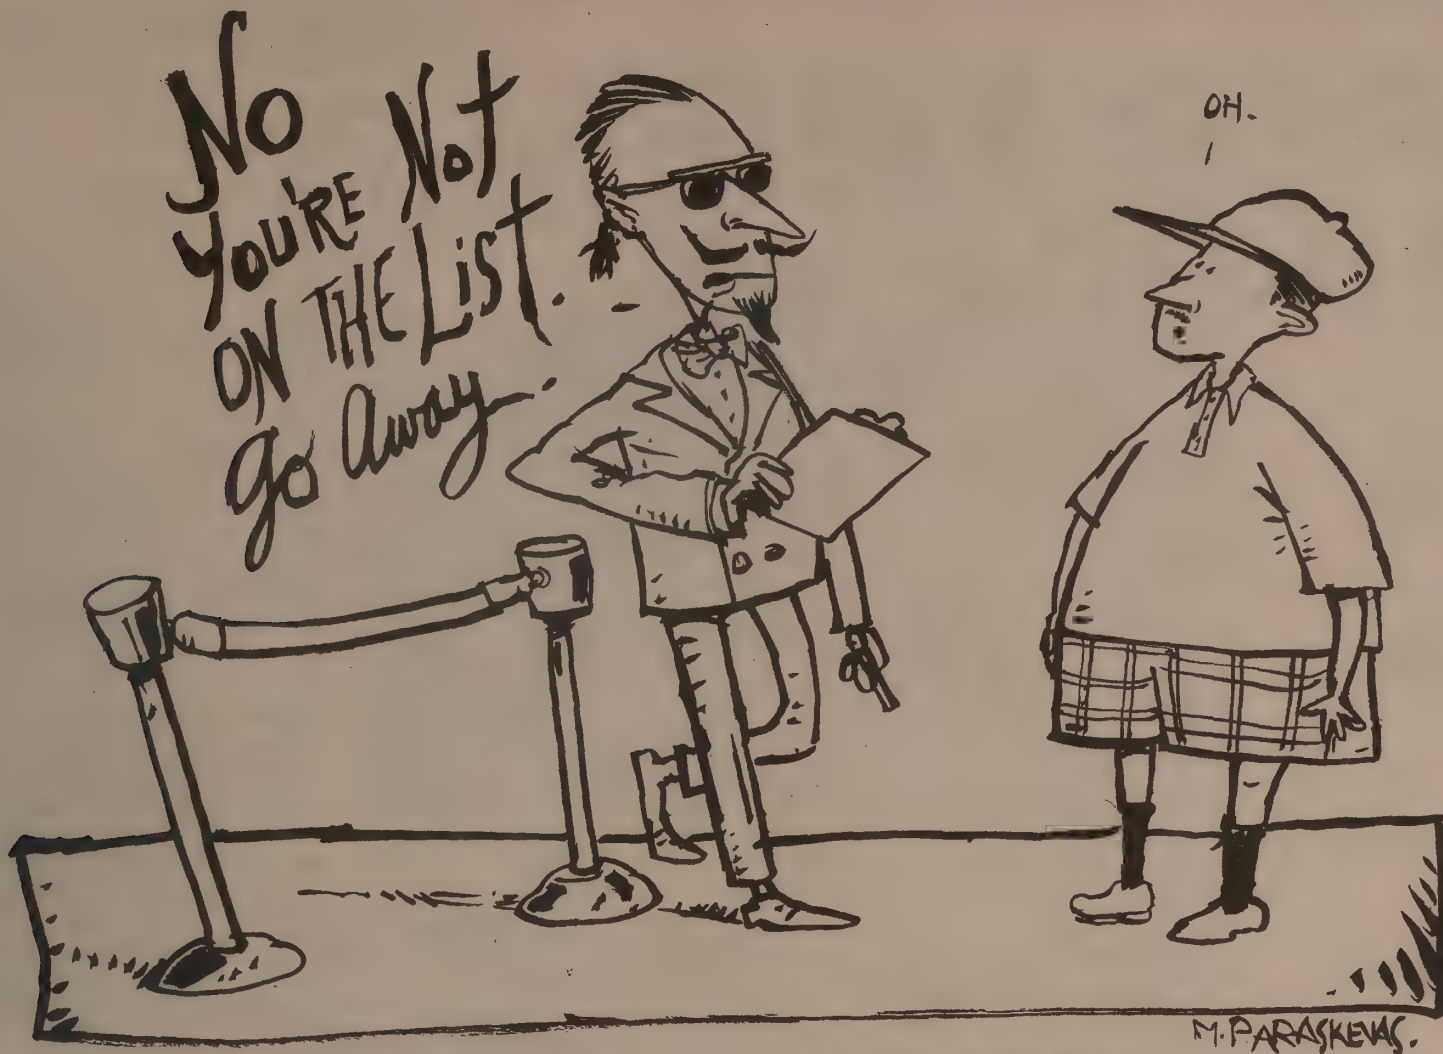 No
you're Not
ON THE List.
go away.
OH.
M. PARASKEVAS.